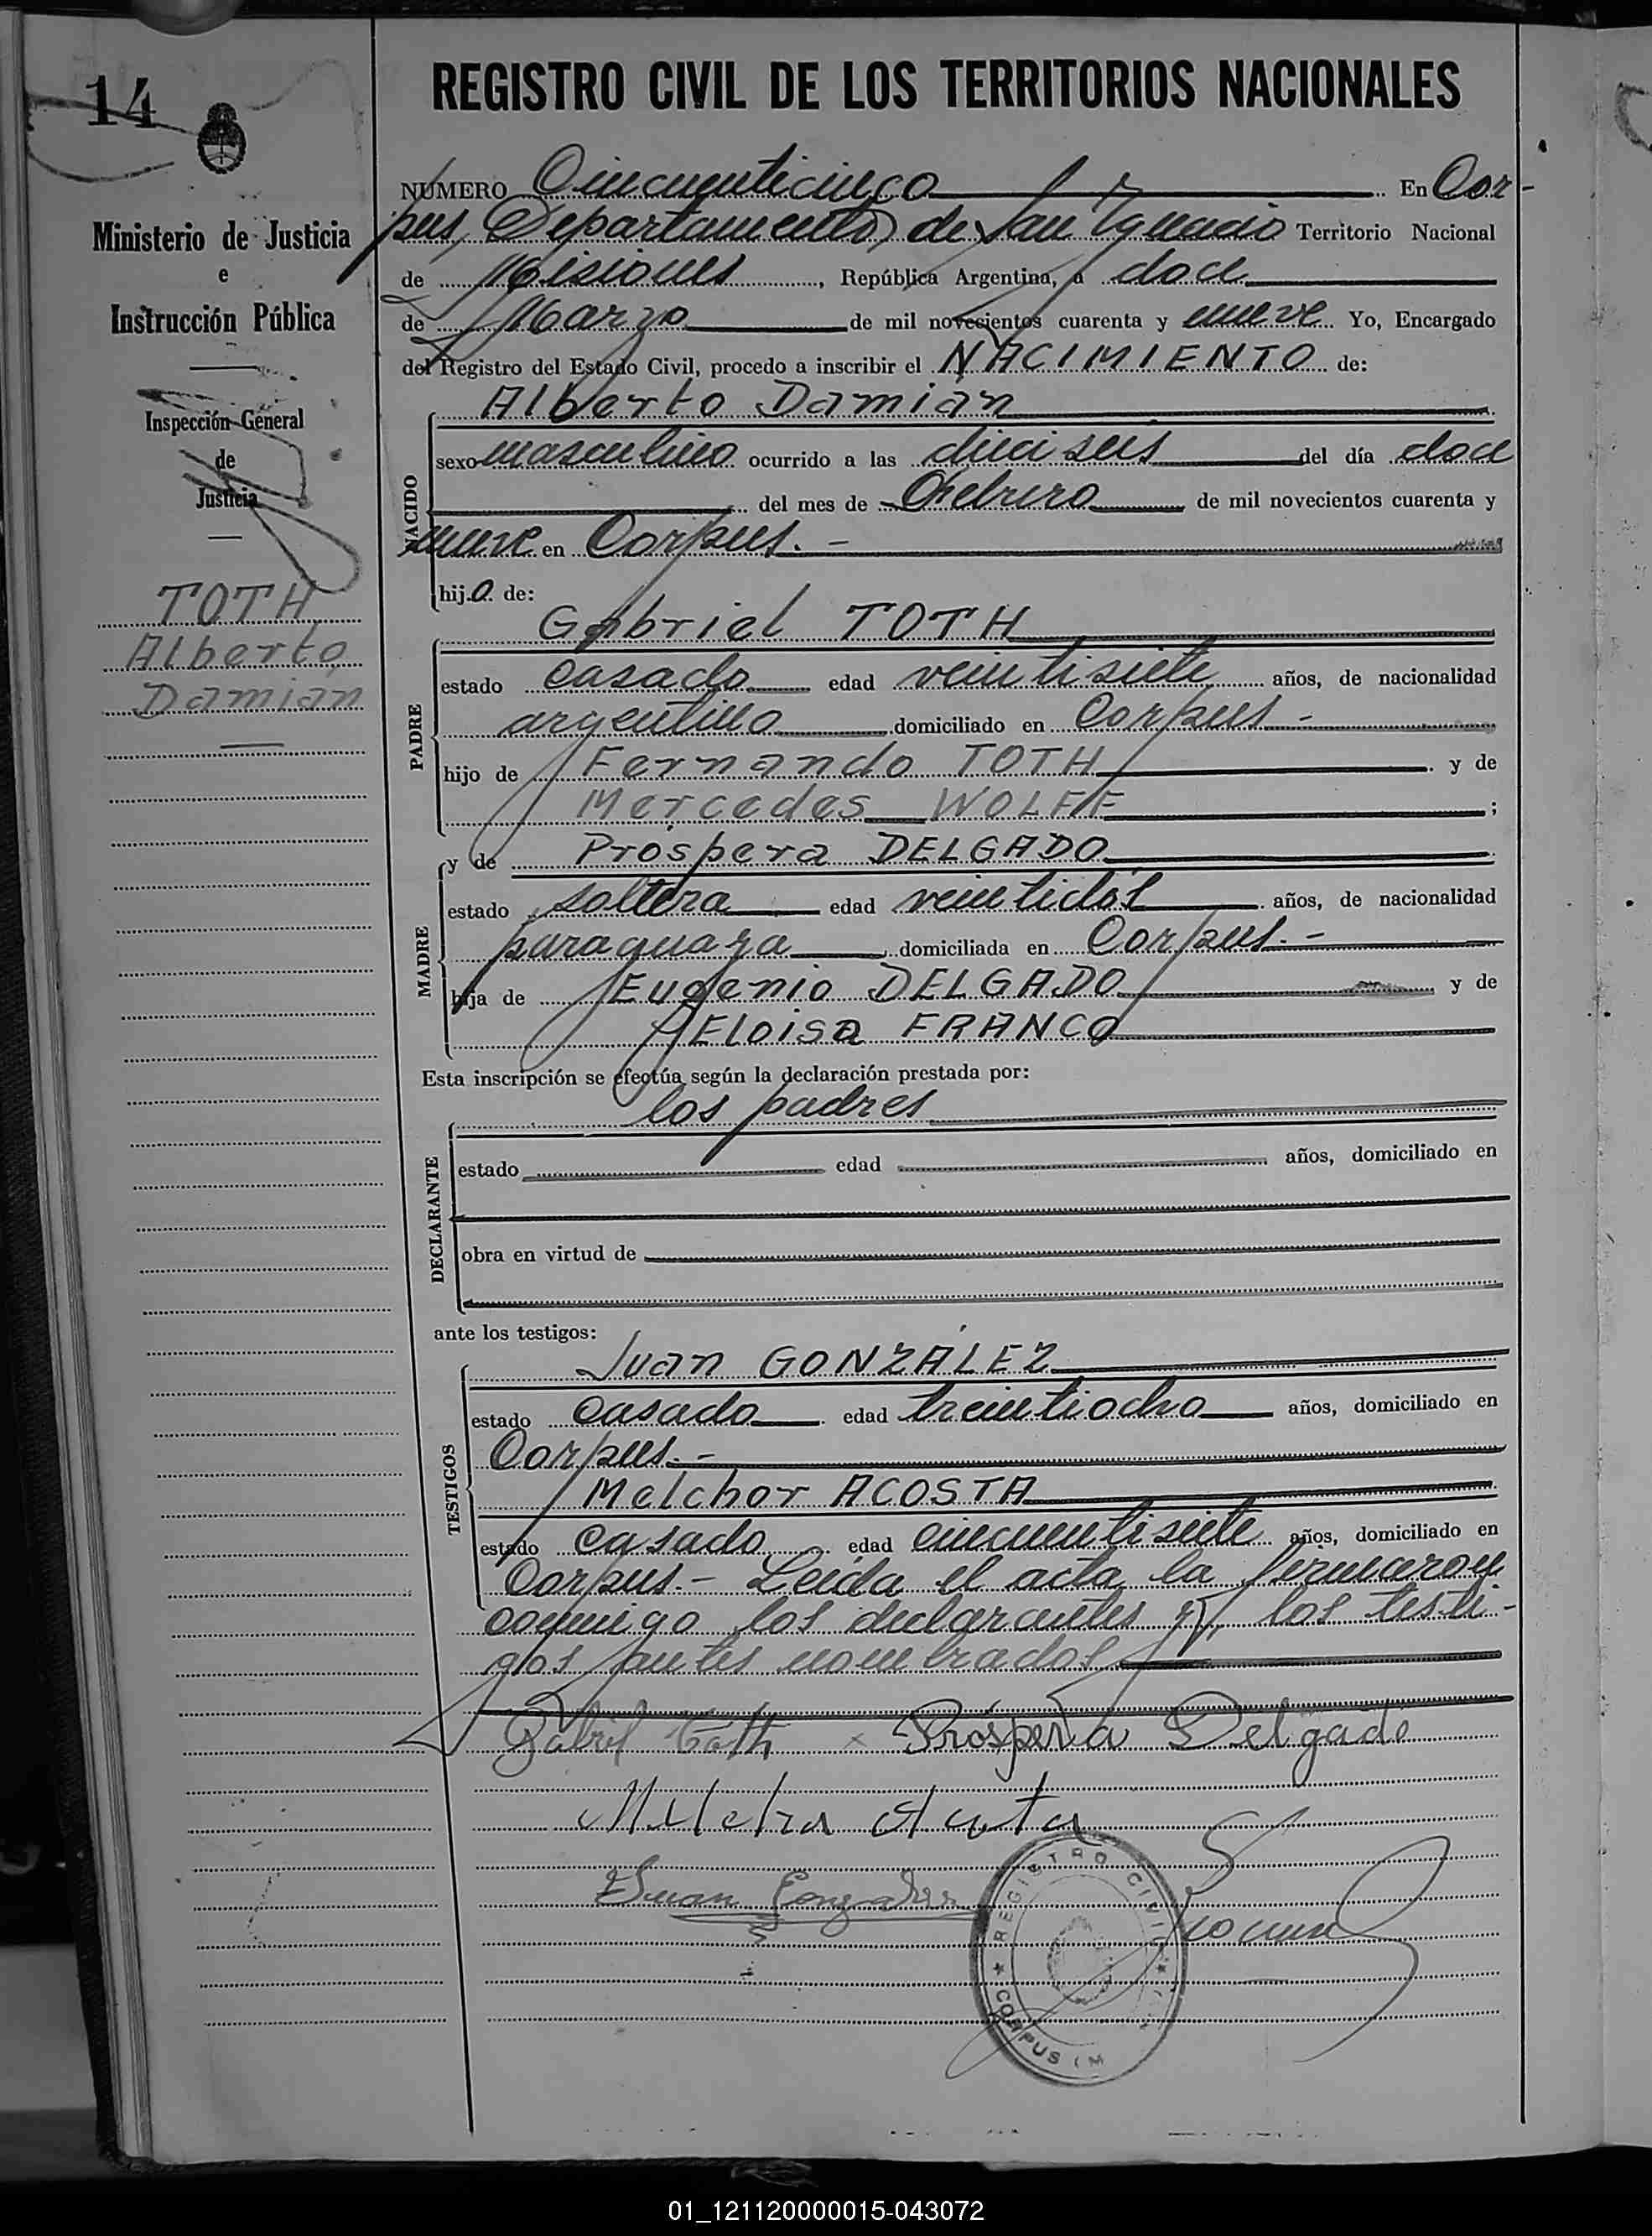 14
REGISTRO CIVIL DE LOS TERRITORIOS NACIONALES
Ministerio de Justicia
e
Instrucción Pública
Inspección General
de
Justicia
TOTH
Alberto
Damián
NÚMERO Cincuenticinco En Cor-
pus, Departamento de San Ignacio Territorio Nacional
de Misiones, República Argentina, a doce
de Marzo de mil novecientos cuarenta y nueve Yo, Encargado
del Registro del Estado Civil, procedo a inscribir el NACIMIENTO de:
Alberto Damián
NACIDO
sexo masculino ocurrido a las dieciseis del día doce
del mes de Febrero de mil novecientos cuarenta y
nueve en Corpus.-
hijo de:
Gabriel TOTH
PADRE
estado casado edad veintisiete años, de nacionalidad
argentino domiciliado en Corpus-
hijo de Fernando TOTH y de
Mercedes WOLFF;
y de Próspera DELGADO
MADRE
estado soltera edad veintidós años, de nacionalidad
paraguaya domiciliada en Corpus.-
hija de Eugenio DELGADO y de
Eloisa FRANCO
Esta inscripción se efectúa según la declaración prestada por:
los padres
DECLARANTE
estado edad años, domiciliado en
obra en virtud de
ante los testigos:
Juan GONZÁLEZ
TESTIGOS
estado casado edad treintiocho años, domiciliado en
Corpus.-
Melchor ACOSTA
estado casado edad cincuentisiete años, domiciliado en
Corpus.- Leida el acta la firmaron
conmigo los declarantes y los testi-
gos antes nombrados
Gabriel Toth x Próspera Delgado
Juan Gonzalez
REGISTRO CIVIL
CORPUS (M
01_121120000015-043072